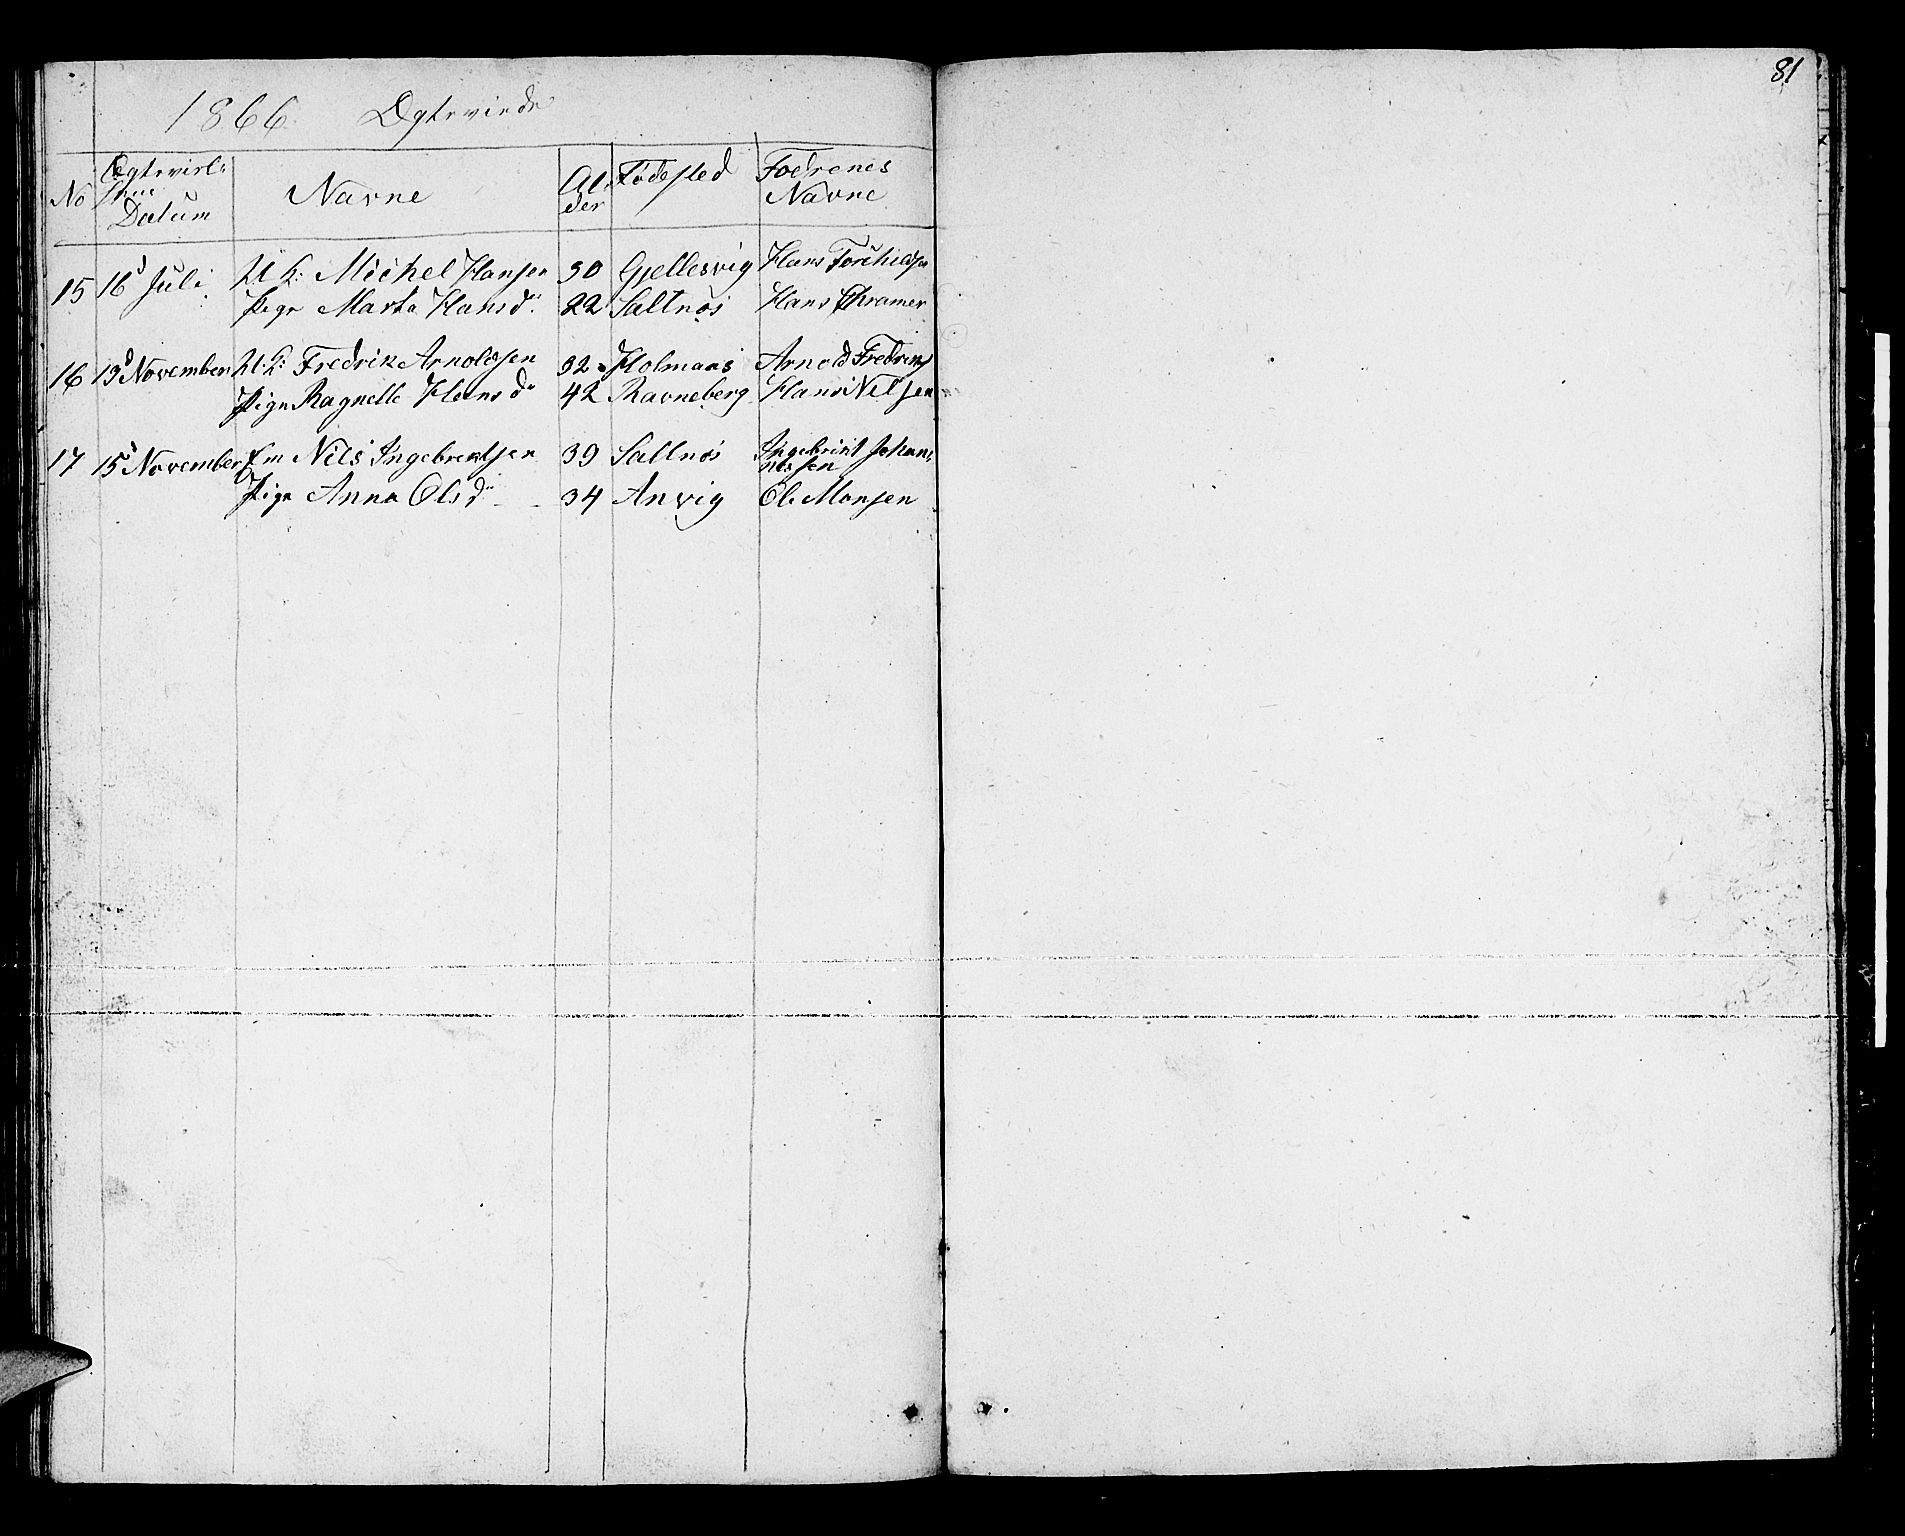 81
1866 Ægteviede
No Ægtevisl: Datum Navne Al der Fødested Fædrenes Navne
15 16d Juli U. K: Michel Hansen 30 Gjellesvig Hans Torkildsen
Pige Marta Hansdr 22 Saltnøs Hans Chramer
16 13d November U: K: Fredrik Arnoldsen 32 Holmaas Arnold Fredriks
Pige Ragnelle Hansdr 42 Ravneberg Hans Nilsen
17 15d November Em Nils Ingebrectsen 39 Saltnøs Ingebrint Johan:
nessen
Pige Anna Olsdr 34 Anvig Ole Monsen